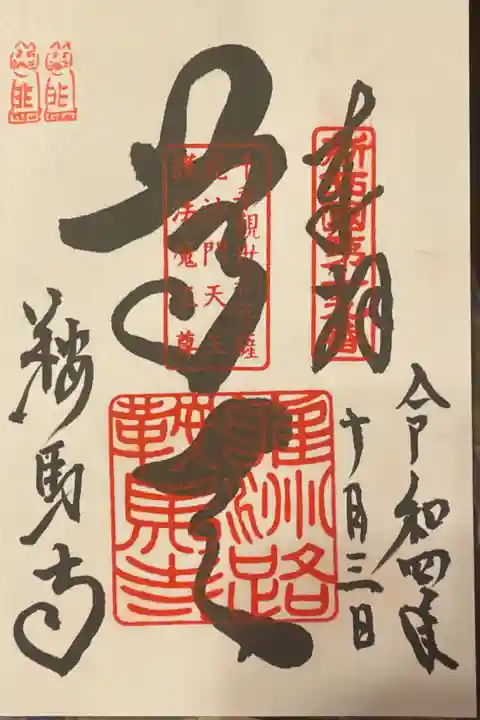 奉拝
新西国第十九番
令和四年
十月三日
尊天
千手観世音菩薩
毘沙門天王
護法魔王尊
雍州路
鞍馬寺
鞍馬寺